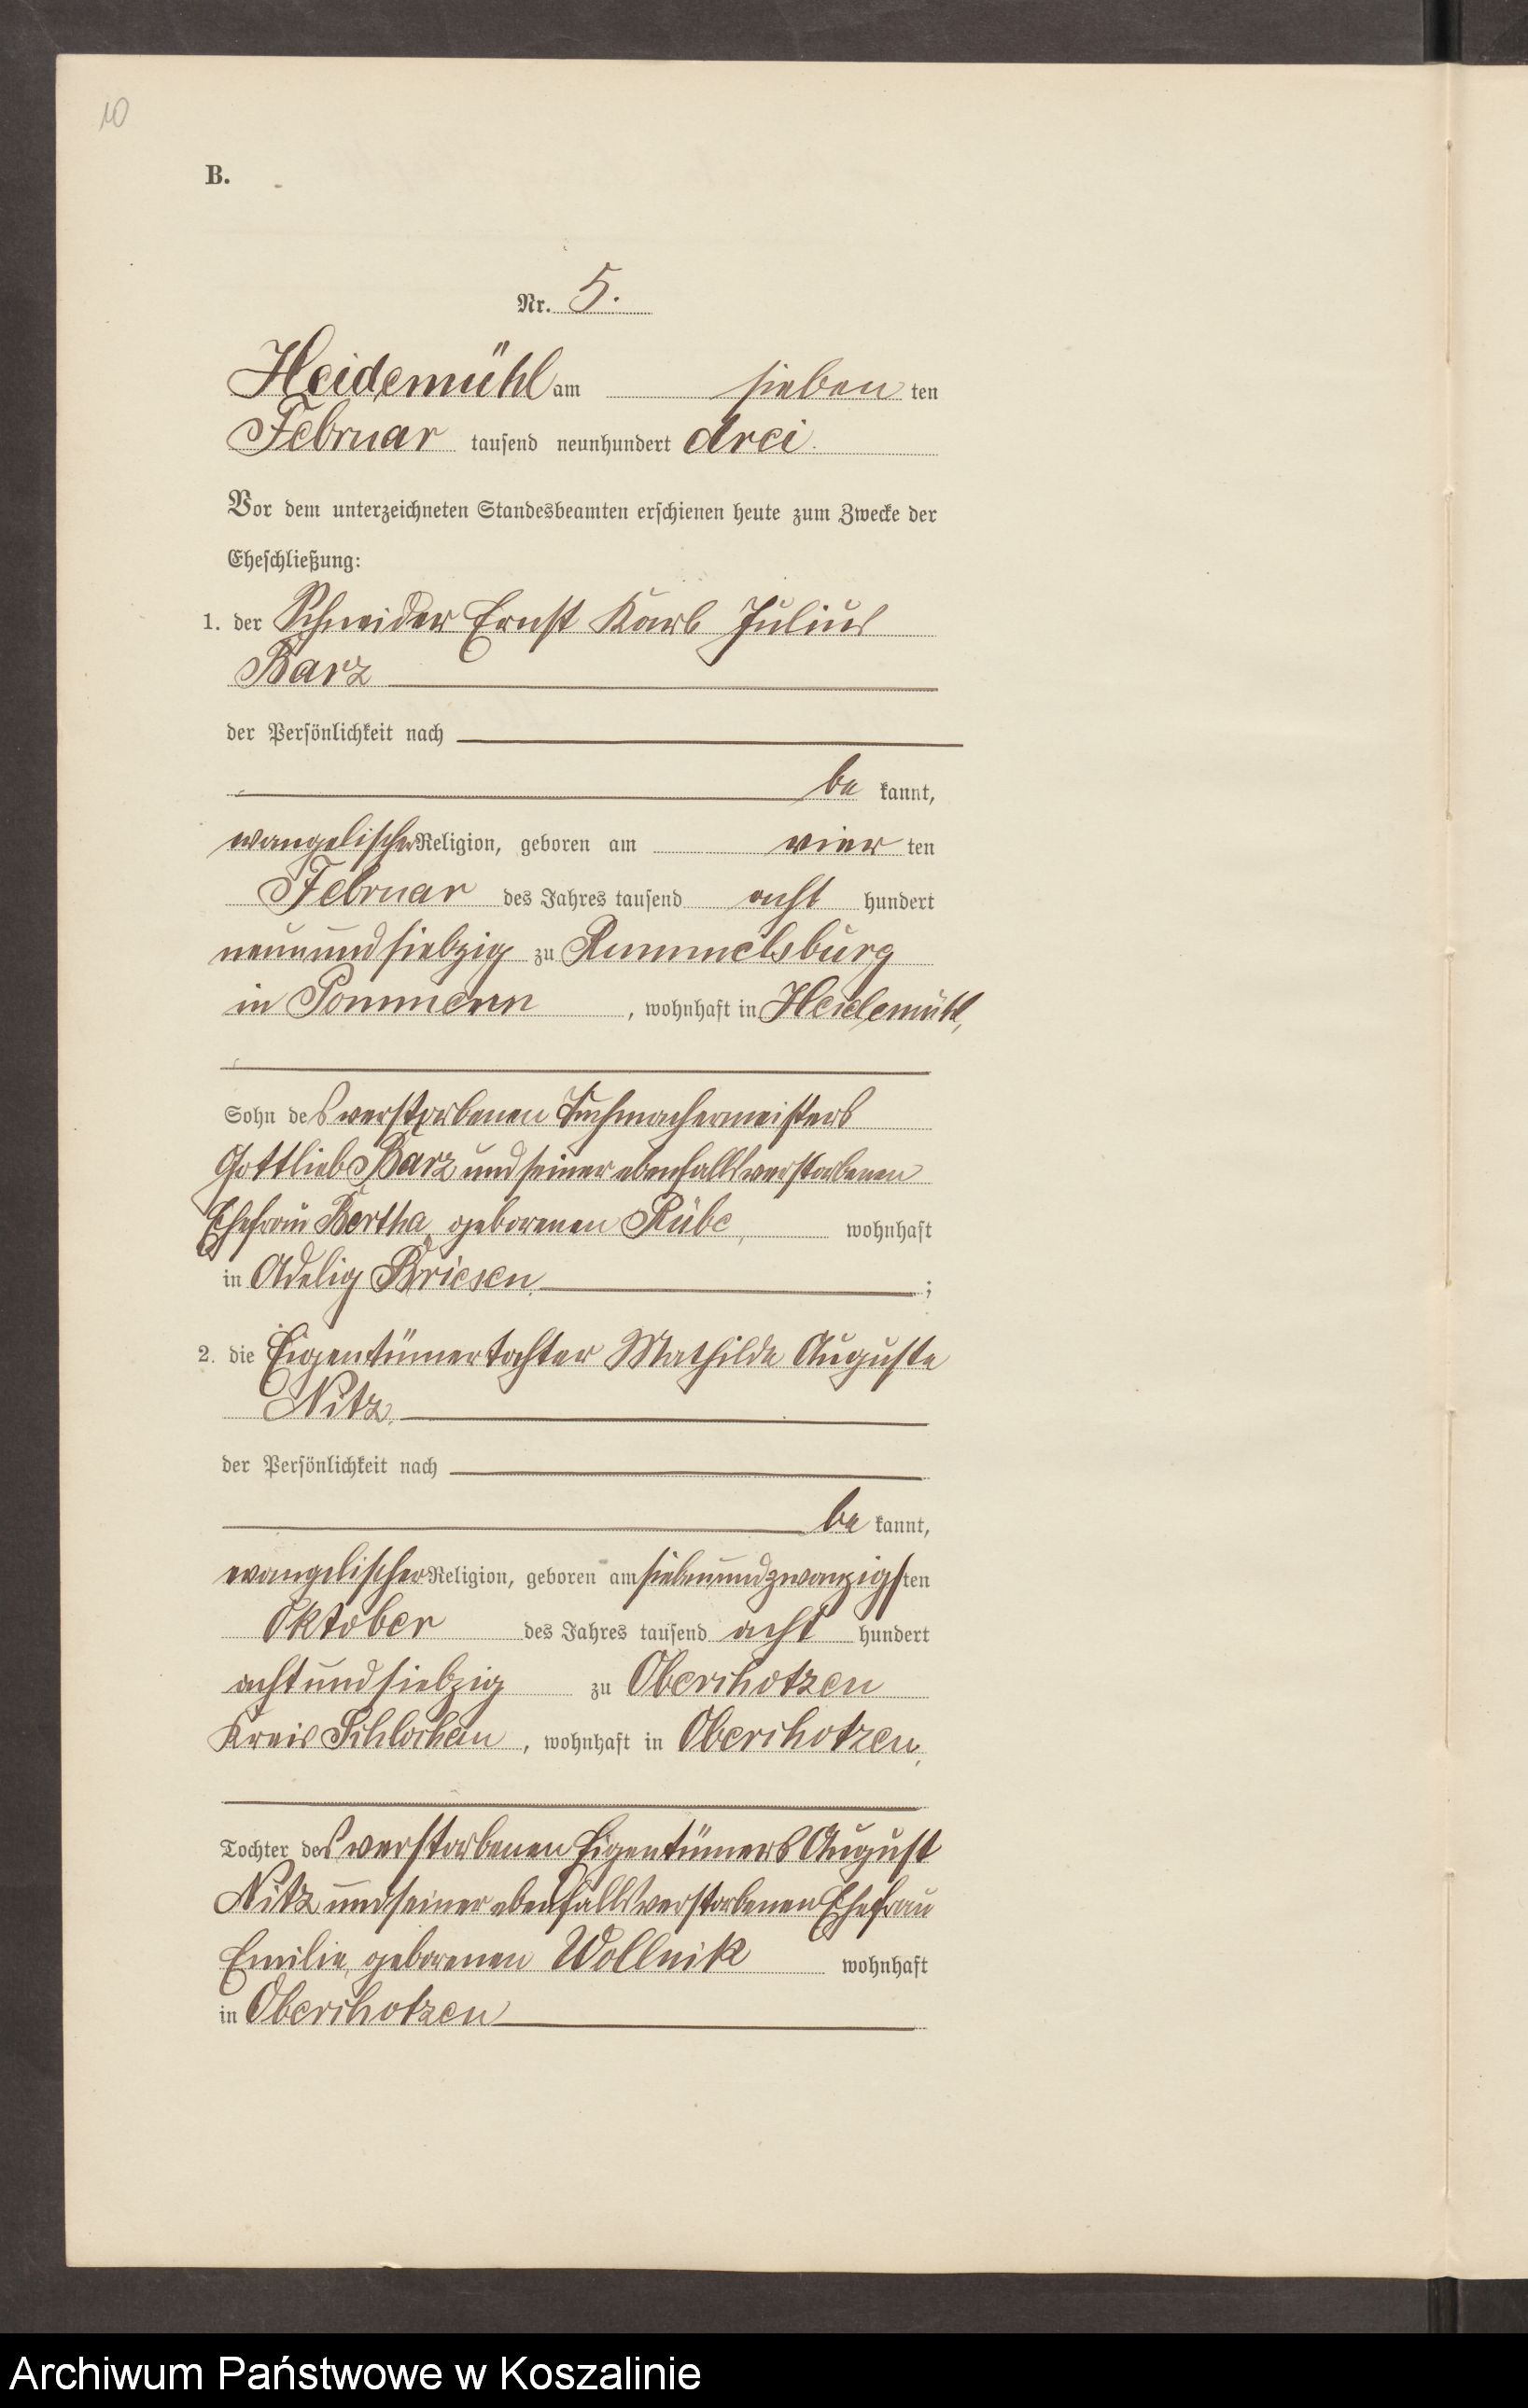 10
B.
Nr. 5.
Heidemühl am sieben ten
Februar tausend neunhundert drei.
Vor dem unterzeichneten Standesbeamten erschienen heute zum Zwecke der
Eheschließung:
1. der Schneider Ernst Karl Julius
Barz
der Persönlichkeit nach
be kannt,
evangelischer Religion, geboren am vier ten
Februar des Jahres tausend acht hundert
neunundsiebzig zu Rummelsburg
in Pommern, wohnhaft in Heidemühl,
Sohn des verstorbenen Tuchmachermeisters
Gottlieb Barz und seiner ebenfalls verstorbenen
Ehefrau Bertha, geborenen Rübe, wohnhaft
in Adelig Briesen ;
2. die Eigentümertochter Mathilde Auguste
Nitz
der Persönlichkeit nach
be kannt,
evangelischer Religion, geboren am siebenundzwanzigsten
Oktober des Jahres tausend acht hundert
achtundsiebzig zu Oberchotzen
Kreis Schlochau, wohnhaft in Oberchotzen,
Tochter des verstorbenen Eigentümers August
Nitz und seiner ebenfalls verstorbenen Ehefrau
Emilie, geborenen Wollnik wohnhaft
in Oberchotzen
Archiwum Państwowe w Koszalinie